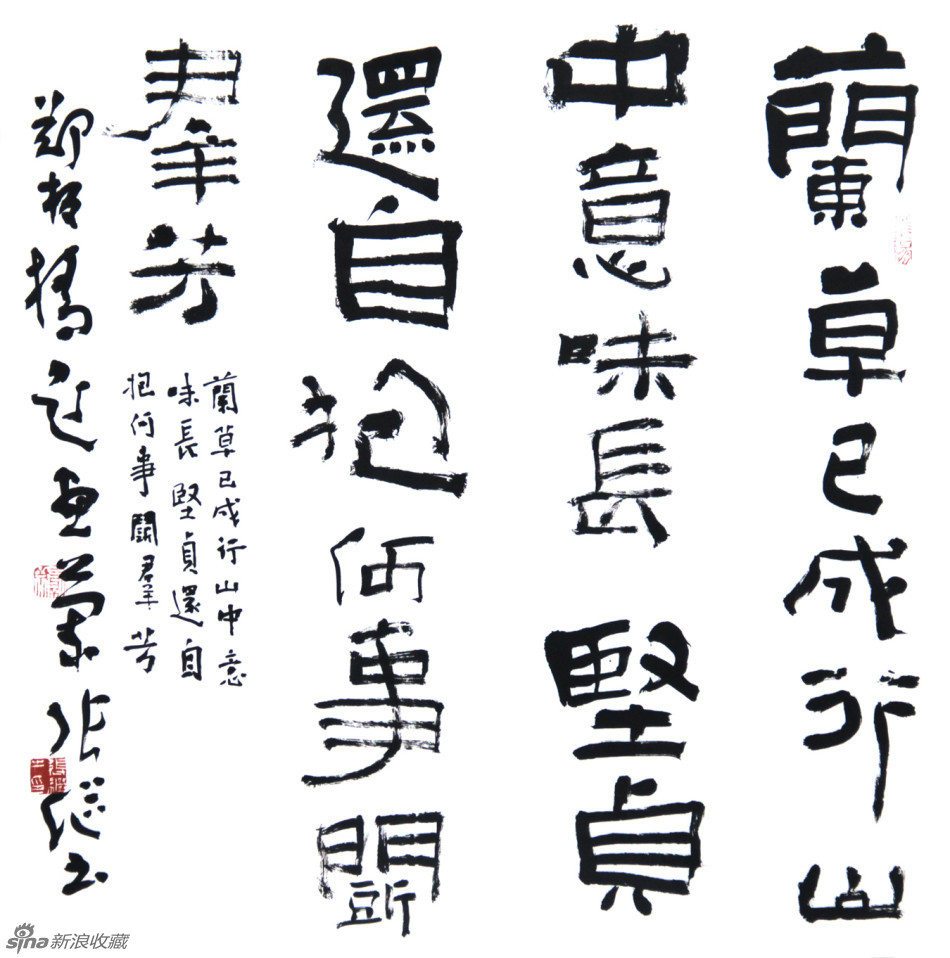 蘭草已成行山
中意味長堅貞
還自抱何事鬭
羣芳
蘭草已成行山中意
味長堅貞還自
抱何事鬭羣芳
鄭板橋題畫蘭張繼書
sina新浪收藏